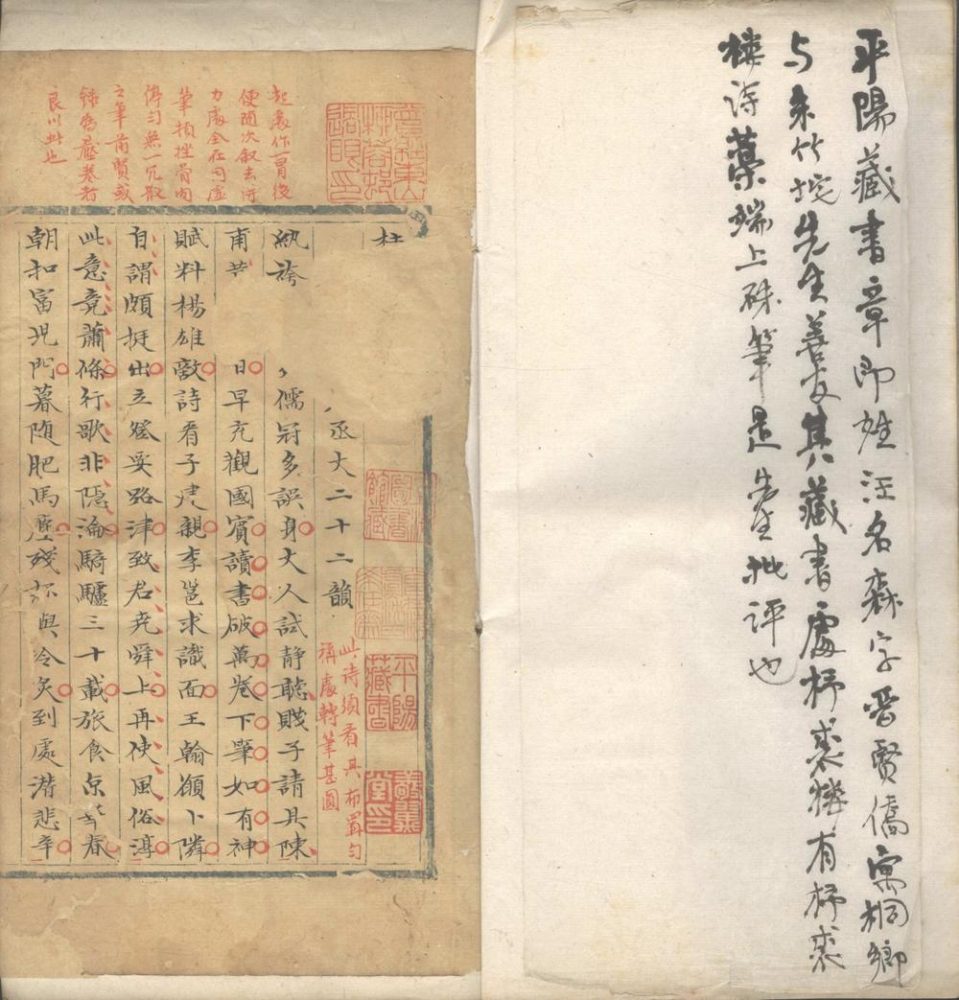 平陽藏書章即姓汪名森字晋賢僑寓桐鄉
与朱竹垞先生善友其藏書處杼裘樓有杼裘
樓詩藁端上硃筆是先生批評也
起處作一冒後
便随次叙去得
力處全在句虚
筆頓挫骨肉
停匀無一冗散
之筆前賢或
録為壓卷者
良以此也
杜
丞丈二十二韻
此詩須看其布置匀
稱處轉筆甚圓
平陽
藏書
紈袴 儒冠多誤身丈人試静聽賤子請具陳
甫 日早充觀國賓讀書破萬卷下筆如有神
賦料楊雄敵詩看子建親李邕求識面王翰願卜隣
自謂頗挺出立登要路津致君堯舜上再使風俗淳
此意竟蕭條行歌非隱淪騎驢三十載旅食京華春
朝扣富児門暮随肥馬塵殘杯與冷炙到處潜悲辛